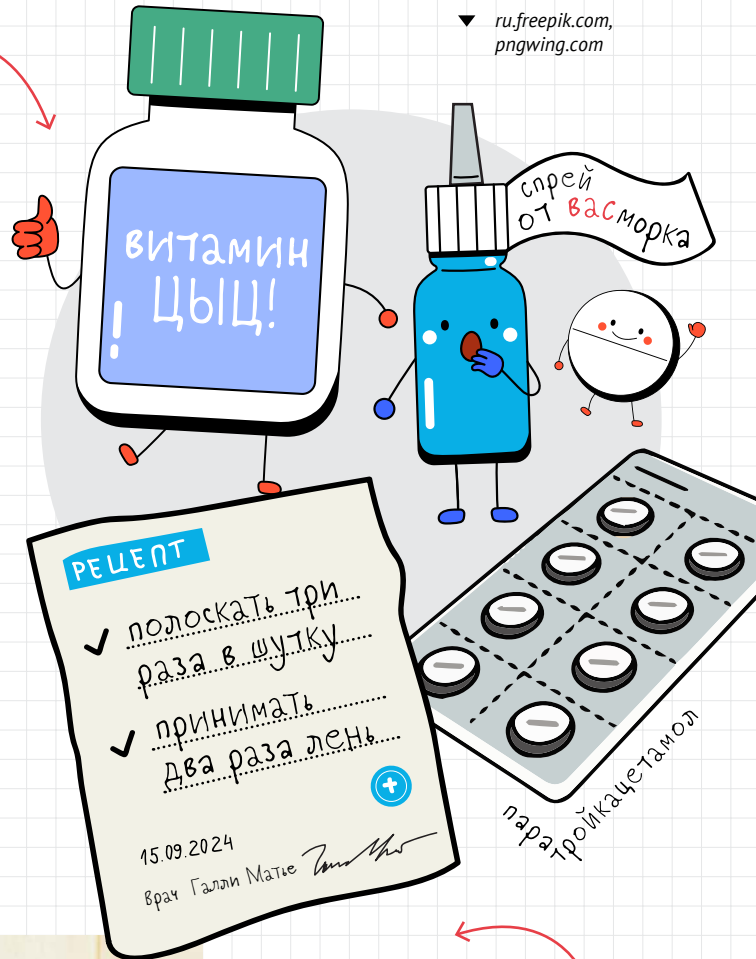 ru.freepik.com,
pngwing.com
витамин
цыц!
спрей
от васморка
рецепт
полоскать три
раза в шутку
принимать
два раза лень
15.09.2024
врач Галли Матье
паратройкацетамол